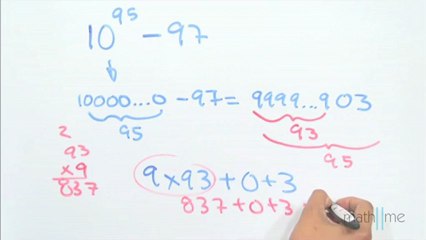 10^95 - 97
10000...0 - 97 = 9999...903
95
93
95
2
93
x9
837
9x93 + 0 + 3
837 + 0 + 3
math me